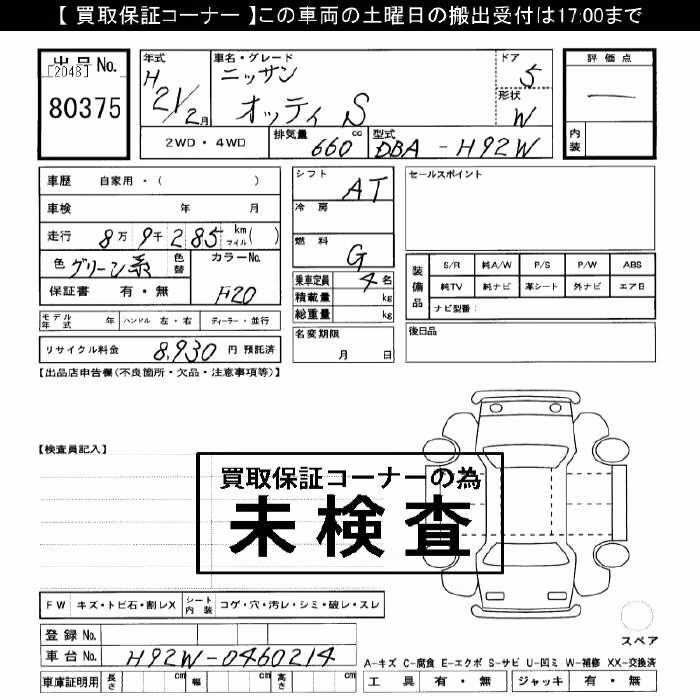 【 買取保証コーナー 】この車両の土曜日の搬出受付は17:00まで
出品No.
[2048]
80375
年式
H
21/2月
車名・グレード
ニッサン
オッティ S
ドア
5
形状
W
評価点
—
内装
2WD・4WD
排気量 660 cc
型式 DBA-H92W
車歴 自家用・( )
車検 年 月
走行 8万9千285 km マイル ( )
色 グリーン系
色替
カラーNo.
H20
保証書 有・無
シフト
AT
冷房
燃料
G
乗車定員 4名
積載量 kg
総重量 kg
セールスポイント
装備品
S/R 純A/W P/S P/W ABS
純TV 純ナビ 革シート 外ナビ エアB
ナビ型番:
モデル年式 年 ハンドル 左・右 ディーラー・並行
名変期限
月 日
後日品
リサイクル料金 8,930 円 預託済
【出品店申告欄(不良箇所・欠品・注意事項等)】
【検査員記入】
買取保証コーナーの為
未検査
FW キズ・トビ石・割レX シート内装 コゲ・穴・汚レ・シミ・破レ・スレ
スペア
登録No.
車台No. H92W-0460214
A-キズ C-腐食 E-エクボ S-サビ U-凹ミ W-補修 XX-交換済
車庫証明用 長さ cm 幅 cm 高さ cm
工具 有・無 ジャッキ 有・無